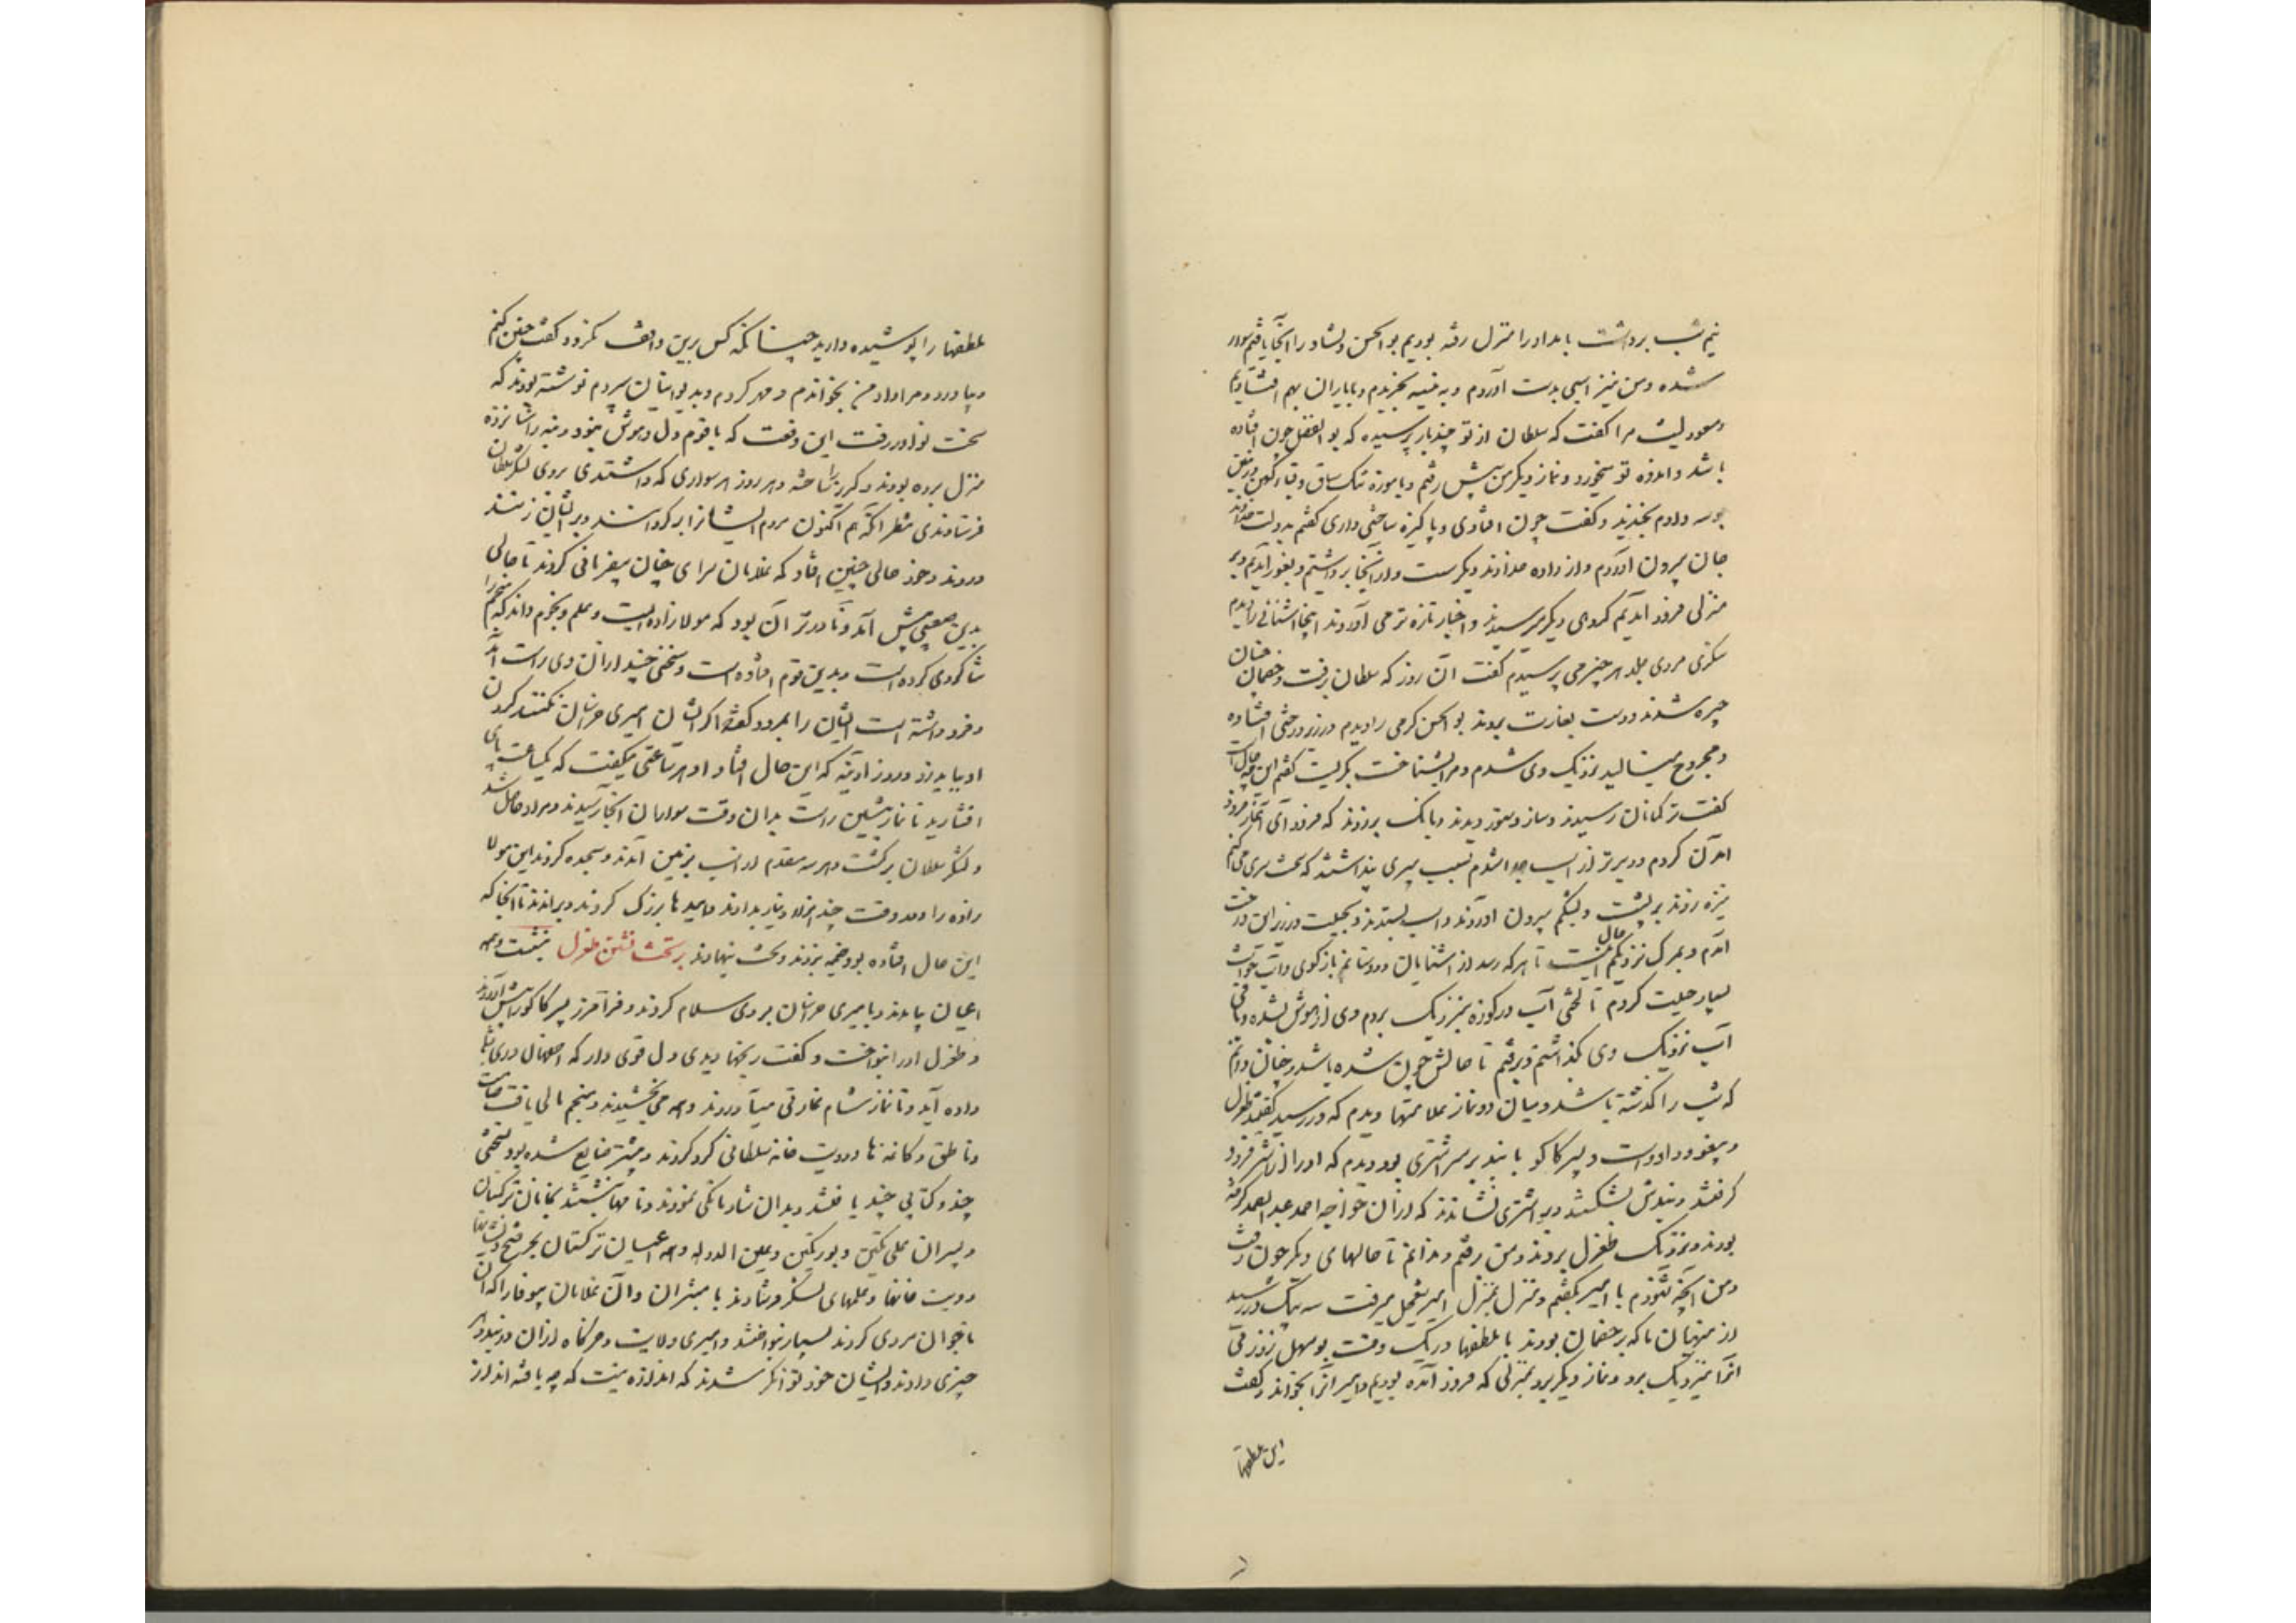 نیم شب برداشت بامداد را منزل رفته بودیم بوالحسن دلشاد را آنجا یافتم سوار
شده و من نیز اسبی بدست آوردم و به نسیه بخریدم و با یاران بهم افتادیم
مسعود لیث مرا گفت که سلطان از تو چند بار پرسیده که بوالفضل چون افتاده
باشد و اندوه تو میخورد و نماز دیگر من پیش رفتم و با موزه تنک ساق و قبای کهن و زمین
بوسه دادم بخندید و گفت چون افتادی و پاکیزه ساختی داری گفتم بدولت خداوند
جان بیرون آوردم و از داده خداوند دیگر ست و از آنجا برداشتیم و بغور آمدیم و بر
منزلی فرود آمدیم گروهی دیگر میرسیدند و اخبار تازه تر می آوردند اینجا آشنائی را دیدم
سکزی مردی جلد هر چیز می پرسیدم گفت آن روز که سلطان برفت و خصمان چنان
چیره شدند و دست بغارت بردند بوالحسن کرجی را دیدم در زیر درختی افتاده
و مجروح مینالید نزدیک وی شدم و مرا بشناخت بگریست گفتم این چه حال است
گفت ترکمانان رسیدند و ساز و ستور دیدند و بانک برزدند که فرود آی آغاز فرود
آمدن کردم و دیرتر از اسب جدا شدم بسبب پیری پنداشتند که سخت سری می کنم
نیزه زدند بر پشت و بشکم بیرون آوردند و اسب بستدند و بحیلت در زیر این درخت
آمدم و بمرک نزدیکم حال اینست تا هر که رسد از آشنایان و دوستانم باز گوی و آب خواست
بسیار حیلت کردم تا لختی آب در کوزه نزدیک بردم وی از هوش بشده و باقی
آب نزدیک وی گذاشتم و برفتم تا حالش چون شده باشد و چنان دانم
که شب را گذشته باشد و میان دو نماز علامتها دیدم که در رسید گفتند طغرل
و پیغو و داود است و پسر کاکو با بند بر سر اشتری بود دیدم که او را از اشتر فرود
گرفتند و بندش بشکستند و بر اشتری نشاندند که از آن خواجه احمد عبدالصمد گرفته
بودند و نزدیک طغرل بردند و من رفتم و ندانم تا حالهای دیگر چون رفت
و من آنچه شنودم با امیر بگفتم و منزل بمنزل امیر بتعجیل میرفت سه پیک در رسید
از منهیان ما که بر خصمان بودند با ملطفها در یک وقت بوسهل زوزنی
آنرا نزدیک برد و نماز دیگر بود بمنزلی که فرود آمده بودیم و امیر آنرا بخواند و گفت
این ملطفها
ملطفها را پوشیده دارید چنانکه کس برین واقف نگردد گفت چنین کنم
و بیاورد و مرا داد من بخواندم و مهر کردم و بدیوانبان سپردم نوشته بودند که
سخت نوادر رفت این دفعت که با قوم دل و هوش نبود و بنه را شانزده
منزل برده بودند و گریز را ساخته و هر روز هر سواری که داشتندی بروی لشکر سلطان
فرستادندی منتظر آنکه هم اکنون مردم ایشانرا بر گردانند و بر ایشان زنند
و روند و خود حالی چنین افتاد که غلامان سرای چنان بیفرمانی کردند تا حالی
بدین صعبی پیش آمد و نادرتر آن بود که مولازاده ایست و علم و نجوم داند که منجم را
شاگردی کرده است و بدین قوم افتاده است و سخنی چند از آن وی راست آمد
و فرو داشته است ایشان را بمرو و گفته اگر ایشان امیری خراسان نکنند گردن
او بباید زد و روز آدینه که این حال افتاد او هر ساعتی میگفت که یکساعت پای
افشارید تا نماز پیشین راست بدان وقت سواران آنجا رسیدند و مراد حاصل شد
و لشکر سلطان برگشت و هر سه مقدم از اسب بزمین آمدند و سجده کردند این مولا
زاده را در وقت چند هزار دینار بدادند و امیدها بزرک کردند و براندند تا آنجا که
این حال افتاده بود خیمه بزدند و تخت بنهادند بر تخت نشستن طغرل بنشست و همه
اعیان بیامدند و بامیری خراسان بر وی سلام کردند و فرامرز پسر کاکو را پیش آوردند
و طغرل او را بنواخت و گفت رنجها دیدی دل قوی دار که اصفهان و ری بشما
داده آید و تا نماز شام غارتی میآوردند و همه می بخشیدند و منجم مالی یافت صامت
و ناطق و کاغذها و دویت خانه سلطانی گرد کردند و بیشتر ضایع شده بود نسختی
چند و کتابی چند یافتند و بدان شادمانگی نمودند و نامها نبشتند بخانان ترکستان
و پسران علی تکین و بورتکین و عین الدوله و همه اعیان ترکستان بخبر فتح و نشانها
دویت خانها و علمهای لشکر فرستادند با مبشران و آن غلامان بیوفا را که آن
ناجوانمردی کردند بسیار بنواختند و امیری ولایت و خرگاه از آن دادند و هر
چیزی دادند و ایشان خود توانگر شدند که اندازه نیست که چه یافته اند از